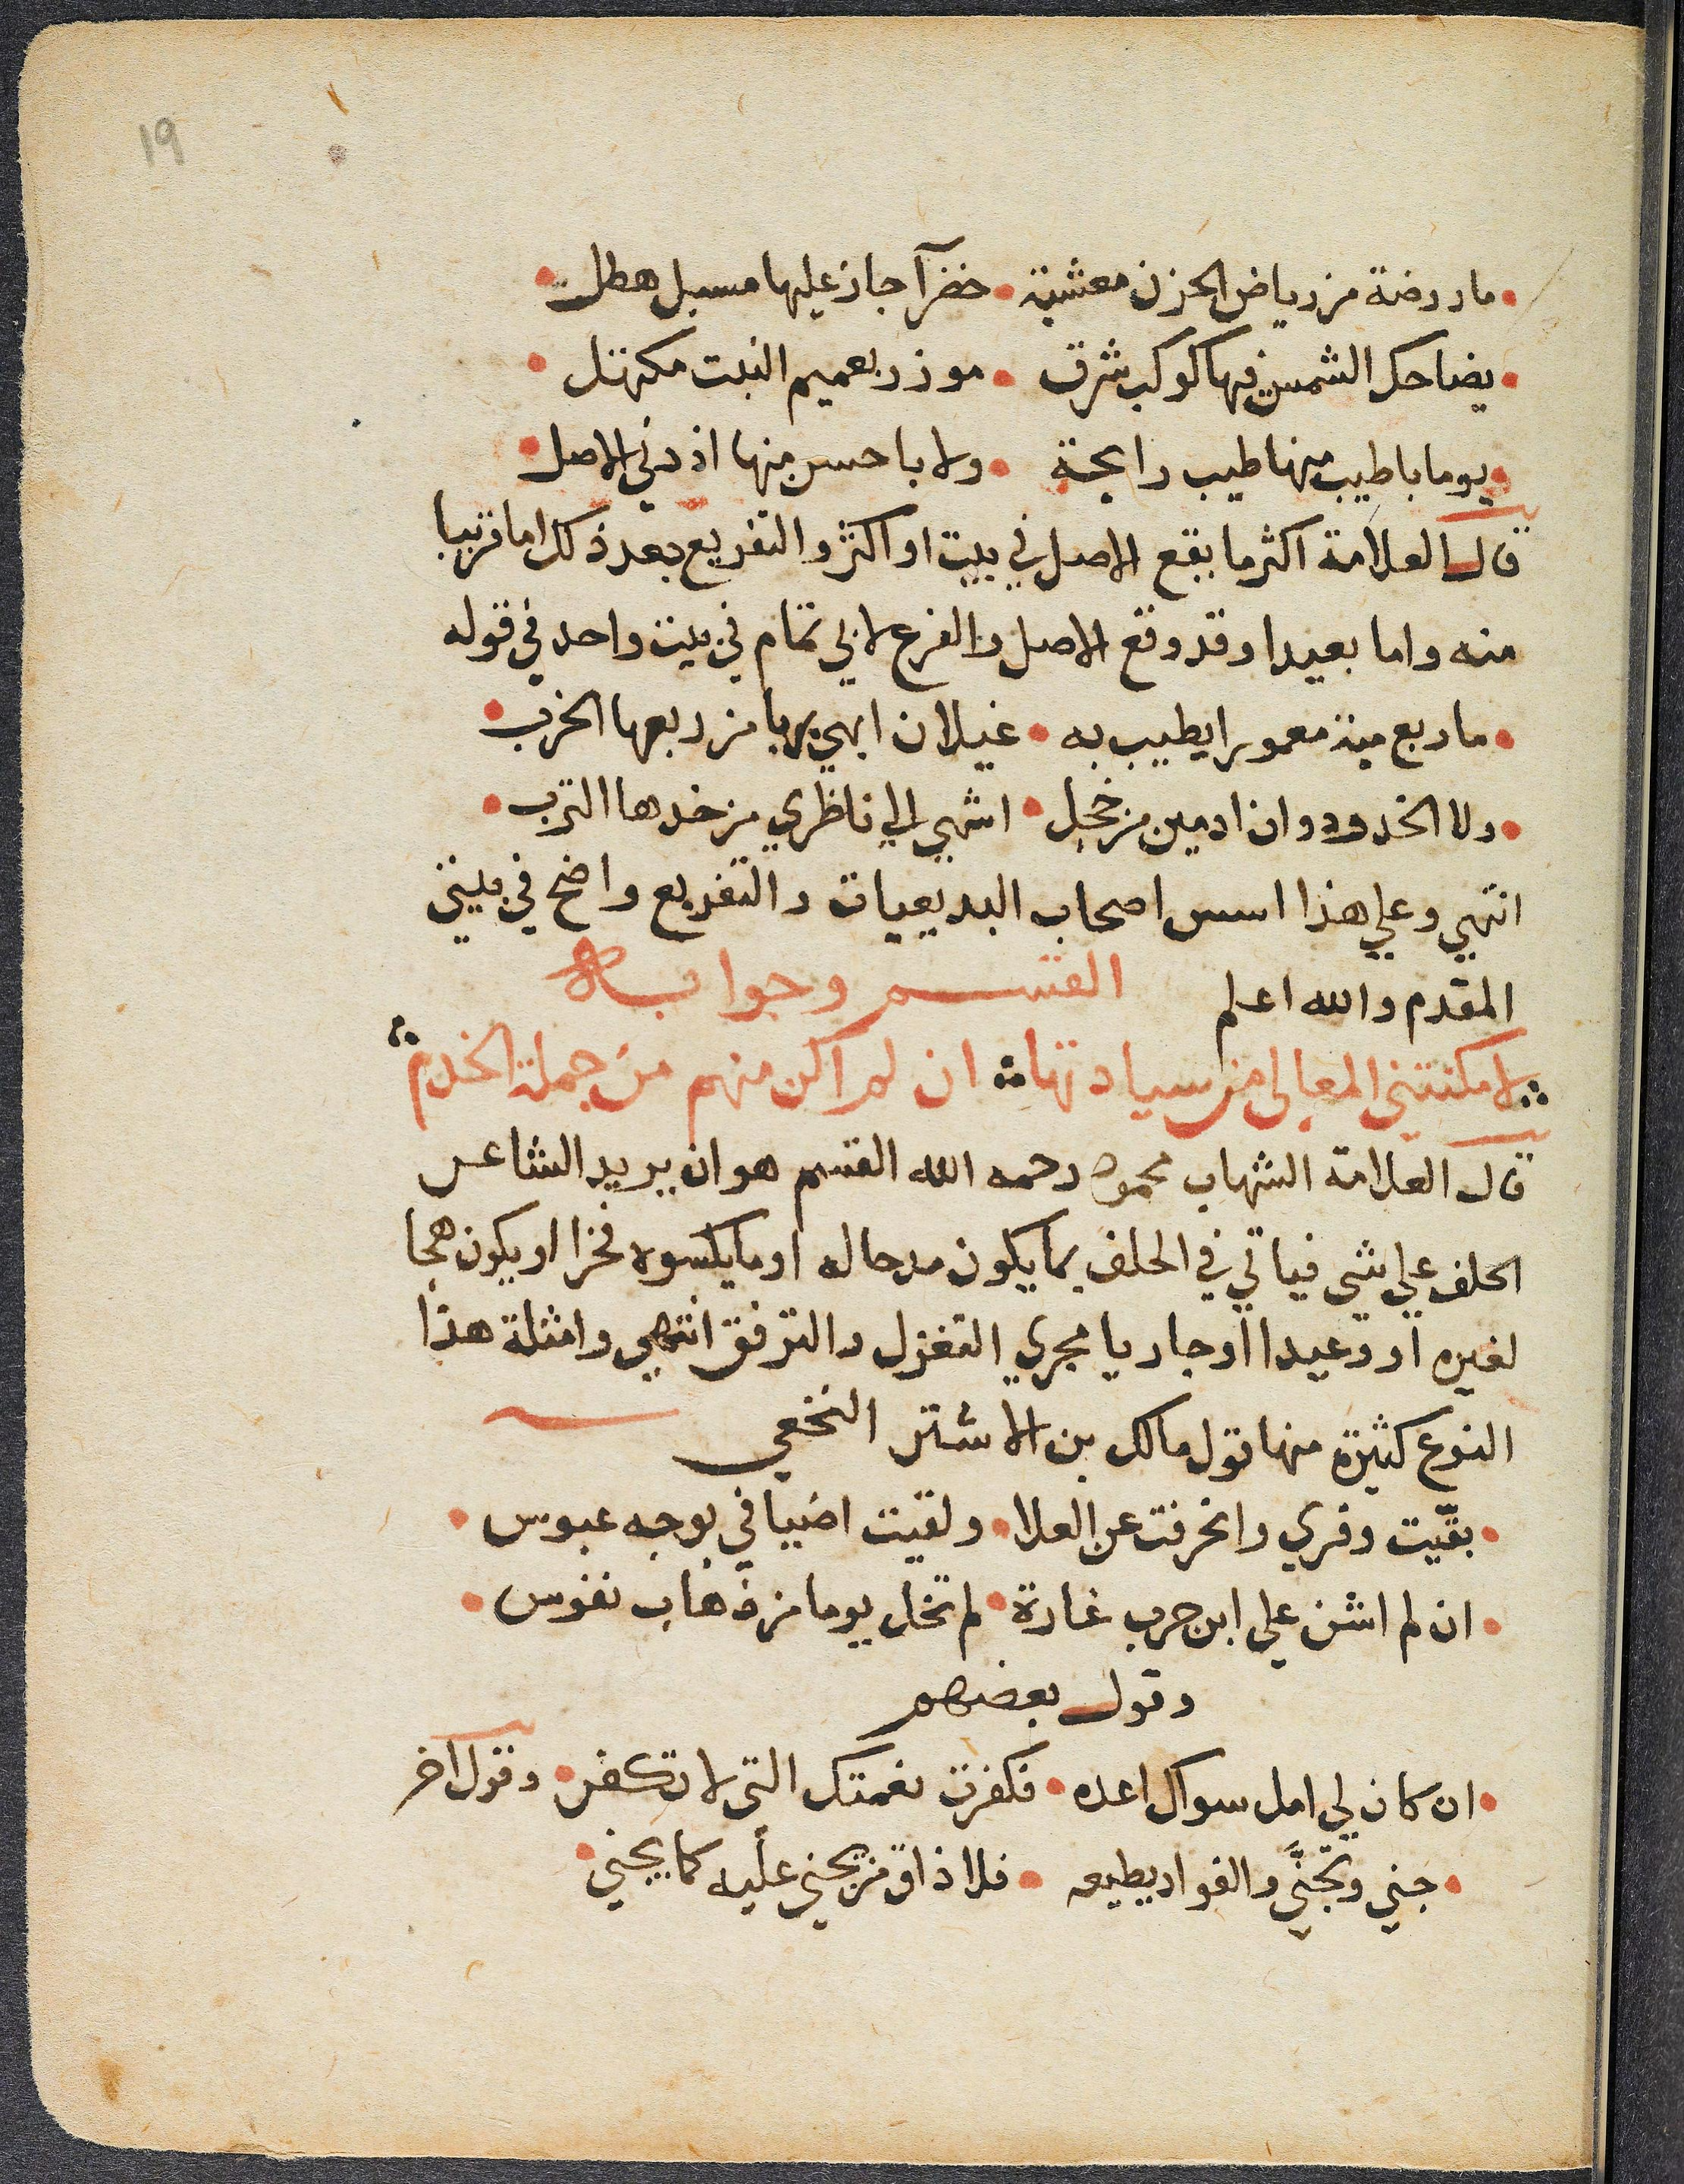 19
ما روضة من رياض الحزن معشبة • خضرآ جاز عليها مسبل هطل
يضاحك الشمس فيها كوكب شرق • موزر بعميم النبت مكتهل
يوما باطيب منها طيب رايحة • ولا باحسن منها اذ دني الاصل
قال العلامة اكثر ما يقع الاصل في بيت او اكثر والتفريع بعد ذلك اما قريبا
منه واما بعيدا وقد وقع الاصل والفرع لابي تمام في بيت واحد في قوله
ما ربع مية معمورا يطيب به • غيلان ابهي ربا من ربعها الخرب
ولا الخدود وان ادمين من خجل • اشهي الي ناظري من خدها الترب
انتهي وعلي هذا اسس اصحاب البديعيات والتفريع واضح في بيتي
المقدم والله اعلم القسم وجوابه
لا مكنتني المعالي من سيادتها ان لم اكن منهم من جملة الخدم
قال العلامة الشهاب محمود رحمه الله القسم هو ان يريد الشاعر
الحلف علي شي فياتي في الحلف بما يكون مدحا له او ما يكسوه فخرا او يكون هجا
لغيره او وعيدا او جاريا مجري التغزل والترفق انتهي وامثلة هذا
النوع كثيرة منها قول مالك بن الاشتر النخعي
بقّيت وفري وانحرفت عن العلا • ولقيت اضيافي بوجه عبوس
ان لم اشن علي ابن حرب غارة • لم تخل يوما من ذهاب نفوس
وقول بعضهم
ان كان لي امل سواك اعده • فكفرت نعمتك التي لا تكفر • وقول اخر
جني وتجنَّي والفواد يطيعه • فلا ذاق من يجني عليه كما يجني